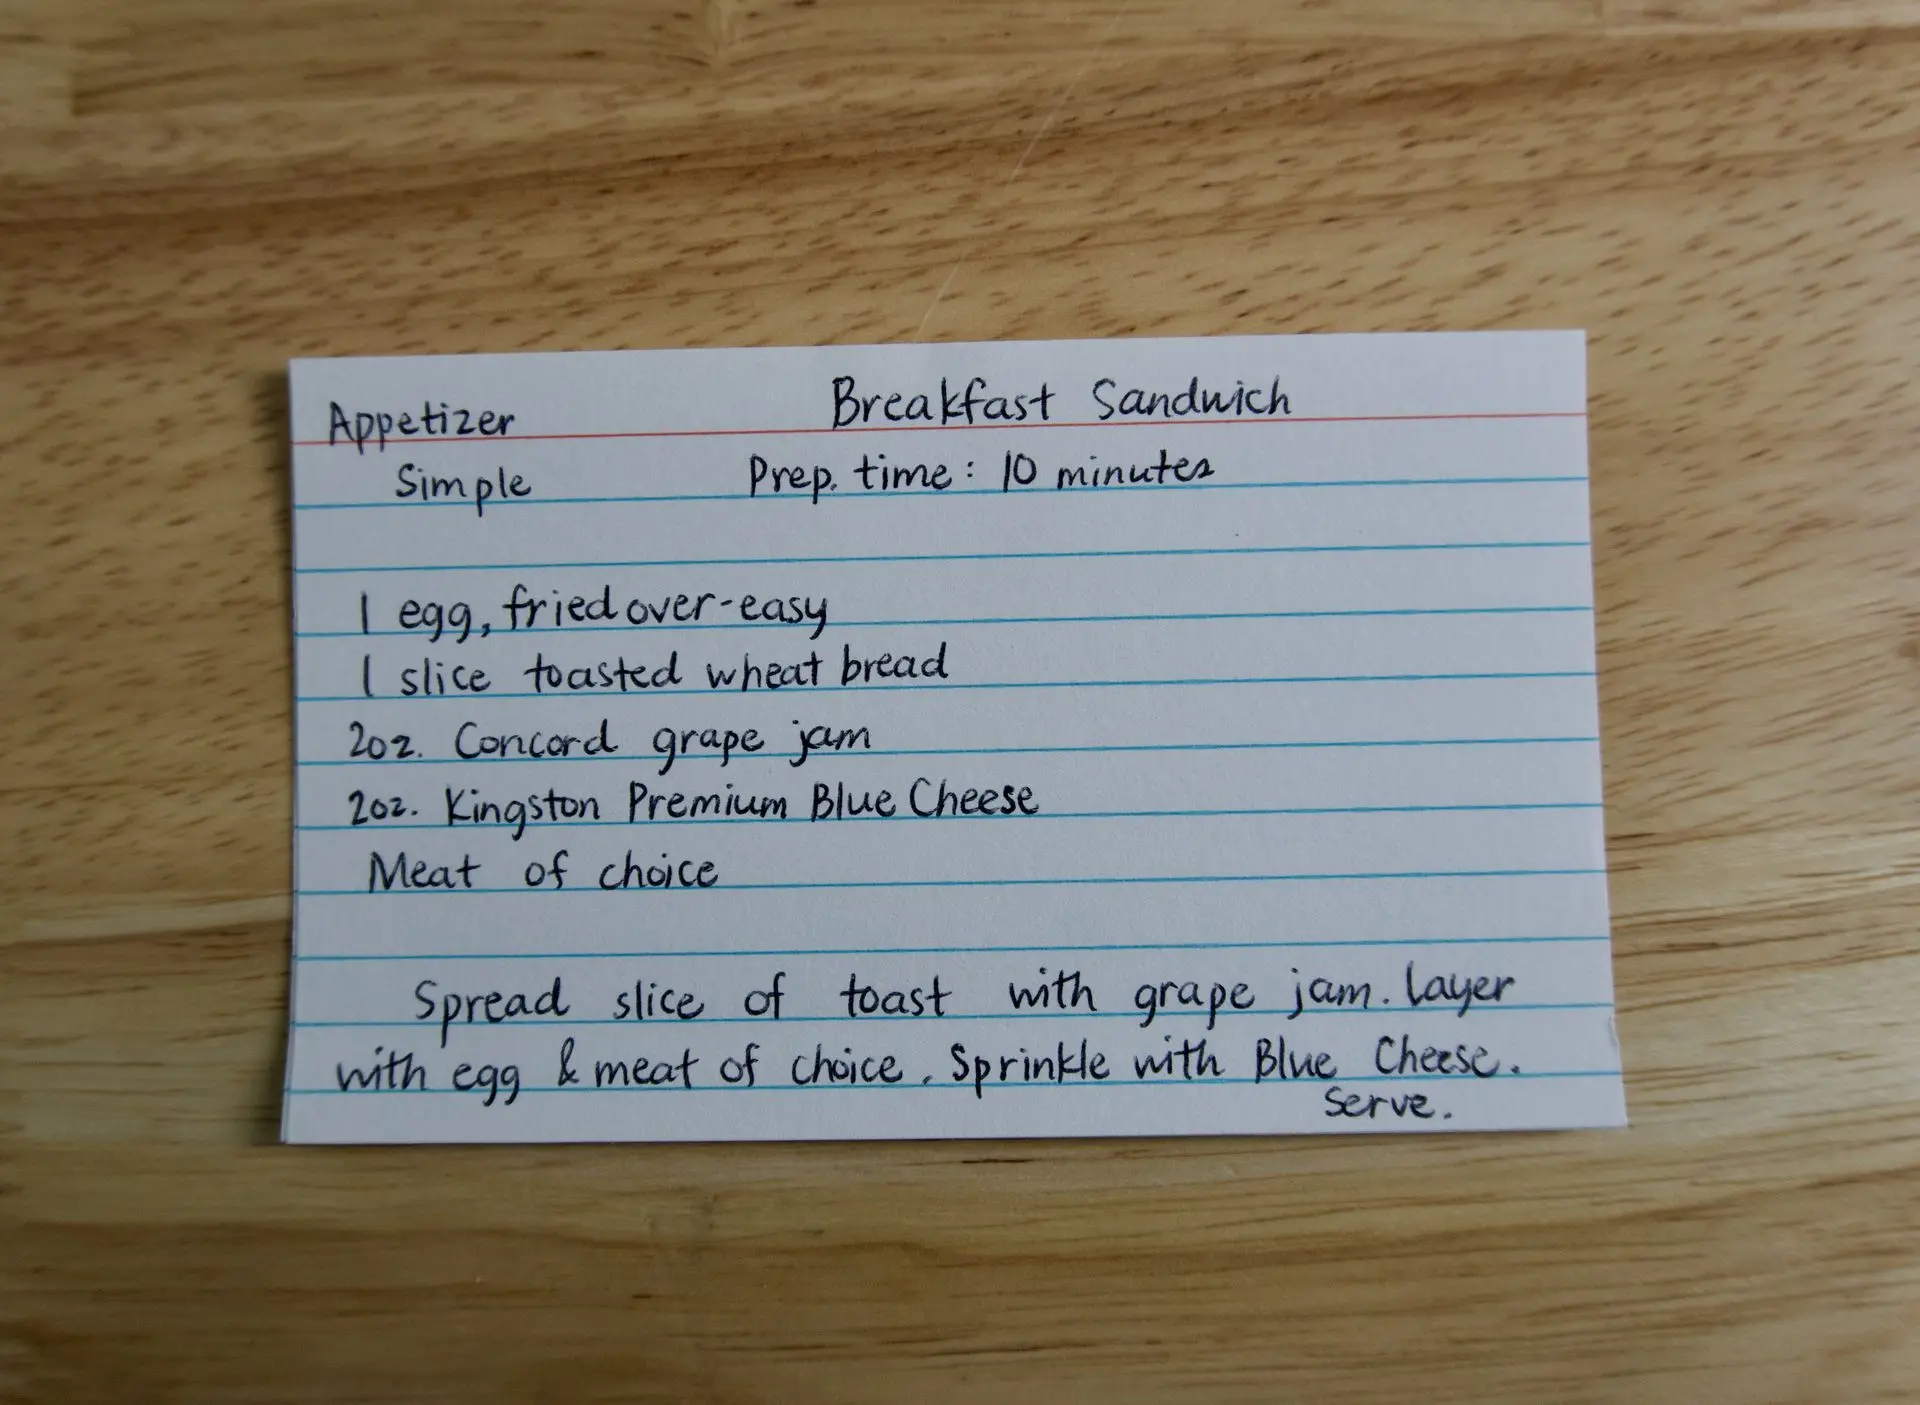 Appetizer Breakfast Sandwich
Simple Prep. time: 10 minutes
1 egg, fried over-easy
1 slice toasted wheat bread
2oz. Concord grape jam
2oz. Kingston Premium Blue Cheese
Meat of choice
Spread slice of toast with grape jam. Layer
with egg & meat of choice. Sprinkle with Blue Cheese.
Serve.